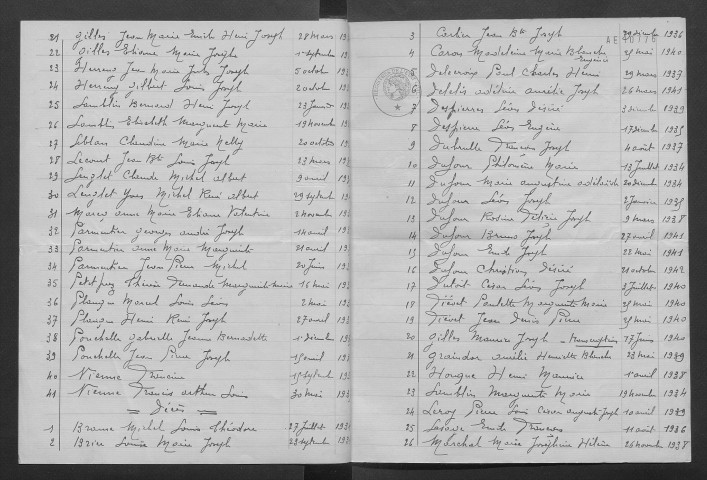 21 Gilles Jean Marie Emile Henri Joseph 28 mars 19
22 Gilles Etienne Marie Joseph 1 septembre 19
23 Herreng Jean Marie Jules Joseph 5 octobre 19
24 Herreng Gilbert Louis Joseph 2 octobre 19
25 Lamblin Bernard Henri Joseph 23 Janvier 19
26 Lamblin Elisabeth Marguerite Marie 19 novembre 19
27 Leblanc Claudine Marie Nelly 20 octobre 19
28 Lecourt Jean Bte Louis Joseph 23 mars 19
29 Lenglet Claude Michel Albert 9 avril 19
30 Lenglet Yves Michel René Albert 29 septembre 19
31 Marcq Anne Marie Etiane Valentine 2 novembre 19
32 Parmentier Georges André Joseph 14 avril 19
33 Parmentier Anne Marie Marguerite 21 avril 19
34 Parmentier Jean Pierre Michel 20 Juin 19
35 Petitprez Thérèse Fernande Marguerite Marie 16 mai 19
36 Planque Marcel Louis 2 mai 19
37 Planque Henri René Joseph 27 avril 19
38 Pouchelle Gabrielle Jeanne Bernadette 1 décembre 19
39 Pouchelle Jean Pierre Joseph 15 avril 19
40 Vienne Francine 15 septembre 19
41 Vienne Francis Arthur Louis 30 mai 19
Décès
1 Brame Michel Louis Théodore 27 Juillet 193
2 Brier Louise Marie Joseph 23 septembre 19
3 Carlier Jean Bte Joseph 29 décembre 1936
4 Caron Madeleine Marie Blanche Eugénie 29 mai 1940
5 Delecroix Paul Charles Henri 29 mars 1937
6 Adeline Aurélie Joseph 26 mars 1941
7 Despierres Léon Désiré 3 décembre 1939
8 Despierre Léon Eugène 17 décembre 1935
9 Dubrulle François Joseph 4 août 1937
10 Dufour Philomène Marie 13 Juillet 1934
11 Dufour Marie Augustine Adélaïde 20 décembre 1934
12 Dufour Léon Joseph 2 Janvier 1935
13 Dufour Rosine Joseph 9 mars 1938
14 Dufour Bruno Joseph 27 avril 1941
15 Dufour Emile Joseph 22 mai 1941
16 Dufour Christian Désiré 21 octobre 1942
17 Dutoit César Léon Joseph 2 Juillet 1940
18 Fiévet Paulette Marguerite Marie 25 mai 1940
19 Fiévet Jean Denis Pierre 25 mai 1940
20 Gilles Maurice Joseph - transcription 17 Juin 1940
21 Graindor Amélie Henriette Blanche 23 mai 1939
22 Hocque Henri Maurice 1 avril 1938
23 Lamblin Marguerite Marie 19 novembre 1934
24 Leroy Pierre Louis César Auguste Joseph 10 avril 1939
25 Emile François 11 août 1936
26 Maréchal Marie Joséphine Hélène 26 novembre 1938